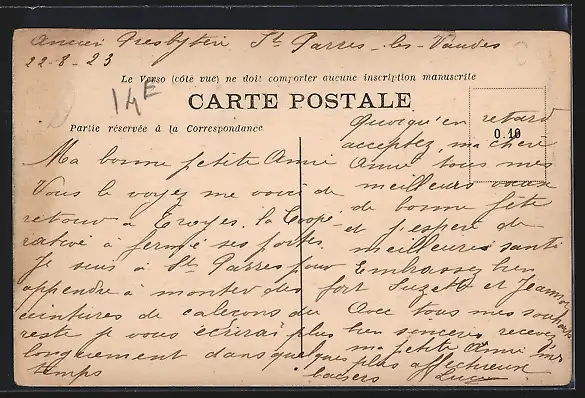 Ancien Presbytère St Parres-les-Vaudes
22-8-23
Le Verso (côté vue) ne doit comporter aucune inscription manuscrite
14E
CARTE POSTALE
Partie réservée à la Correspondance
0.10
Ma bonne petite Amie
Vous le voyez me voici de
retour à Troyes. la Coopé
rative à fermé ses portes.
Je suis à St Parres pour
apprendre à monter des
ceintures de caleçons du
reste je vous écrirai plus
longuement dans quelques
temps
Quoiqu'en retard
acceptez, ma chère
Amie tous mes
meilleurs vœux
de bonne fête
et j'espère de
meilleures santé
Embrassez bien
fort Suzette et
Avec tous mes souhaits
bien sincères recevez
ma petite Amie mes
plus affectueux
baisers Lucie